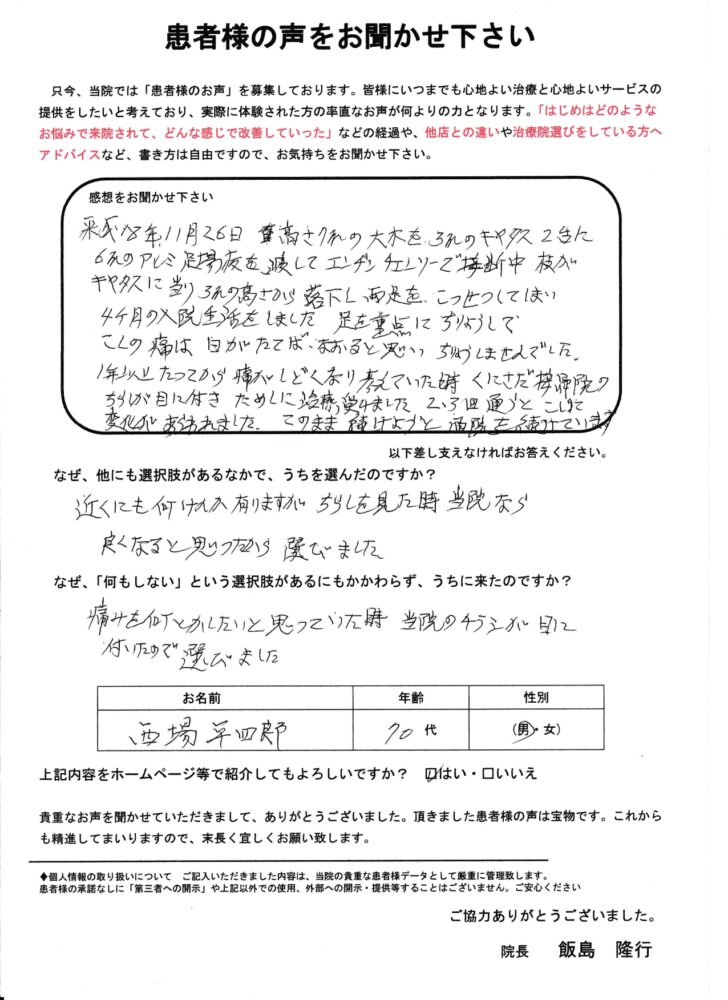 患者様の声をお聞かせ下さい
只今、当院では「患者様のお声」を募集しております。皆様にいつまでも心地よい治療と心地よいサービスの
提供をしたいと考えており、実際に体験された方の率直なお声が何よりの力となります。「はじめはどのような
お悩みで来院されて、どんな感じで改善していった」などの経過や、他店との違いや治療院選びをしている方へ
アドバイスなど、書き方は自由ですので、お気持ちをお聞かせ下さい。
感想をお聞かせ下さい
年11月26日 高さ の大木を、 のキャタス 2台に
のアルミ足場板を渡して エンヂンチェンソーで 中 枝が
キャタスに当り の高さから落下し両足を、こっせつしてしまい
4ケ月の入院生活をしました 足を重点に ちりょうして
こしの痛は 日がたてば、なおると思い ちりょうしませんでした。
1年以上たってから痛がひどくなり考えていた時 くにさだ の
ちらしが目に付き ためしに治療 ました 2、3回通うと こしに
変化があらわれました。このまま続けようと 通院を続けています
以下差し支えなければお答えください。
なぜ、他にも選択肢があるなかで、うちを選んだのですか?
近くにも何けんか有りますが ちらしを見た時 当院なら
良くなると思ったから 選びました
なぜ、「何もしない」という選択肢があるにもかかわらず、うちに来たのですか?
痛みを何とかしたいと思っていた時 当院のチラシが目に
付いたので選びました
お名前 年齢 性別
西場 四郎 70 代 (男・女)
上記内容をホームページ等で紹介してもよろしいですか? ☑はい・□いいえ
貴重なお声を聞かせていただきまして、ありがとうございました。頂きました患者様の声は宝物です。これから
も精進してまいりますので、末長く宜しくお願い致します。
◆個人情報の取り扱いについて ご記入いただきました内容は、当院の貴重な患者様データとして厳重に管理致します。
患者様の承諾なしに「第三者への開示」や上記以外での使用、外部への開示・提供等することはございません。ご安心ください
ご協力ありがとうございました。
院長 飯島 隆行